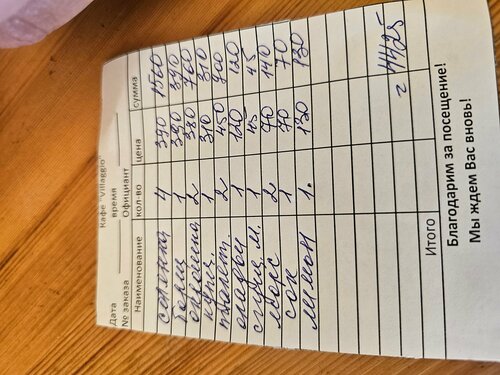 Кафе "Villaggio"
Дата
время
№ заказа
Официант
Наименование кол-во цена сумма
солянка 4 390 1560
1 390 390
окрошка 2 380 760
1 310 310
2 450 900
оладьи 1 120 120
1 45 45
морс 2 70 140
сок 1 70 70
лимон 1. 130 130
Итого = 4425
Благодарим за посещение!
Мы ждем Вас вновь!